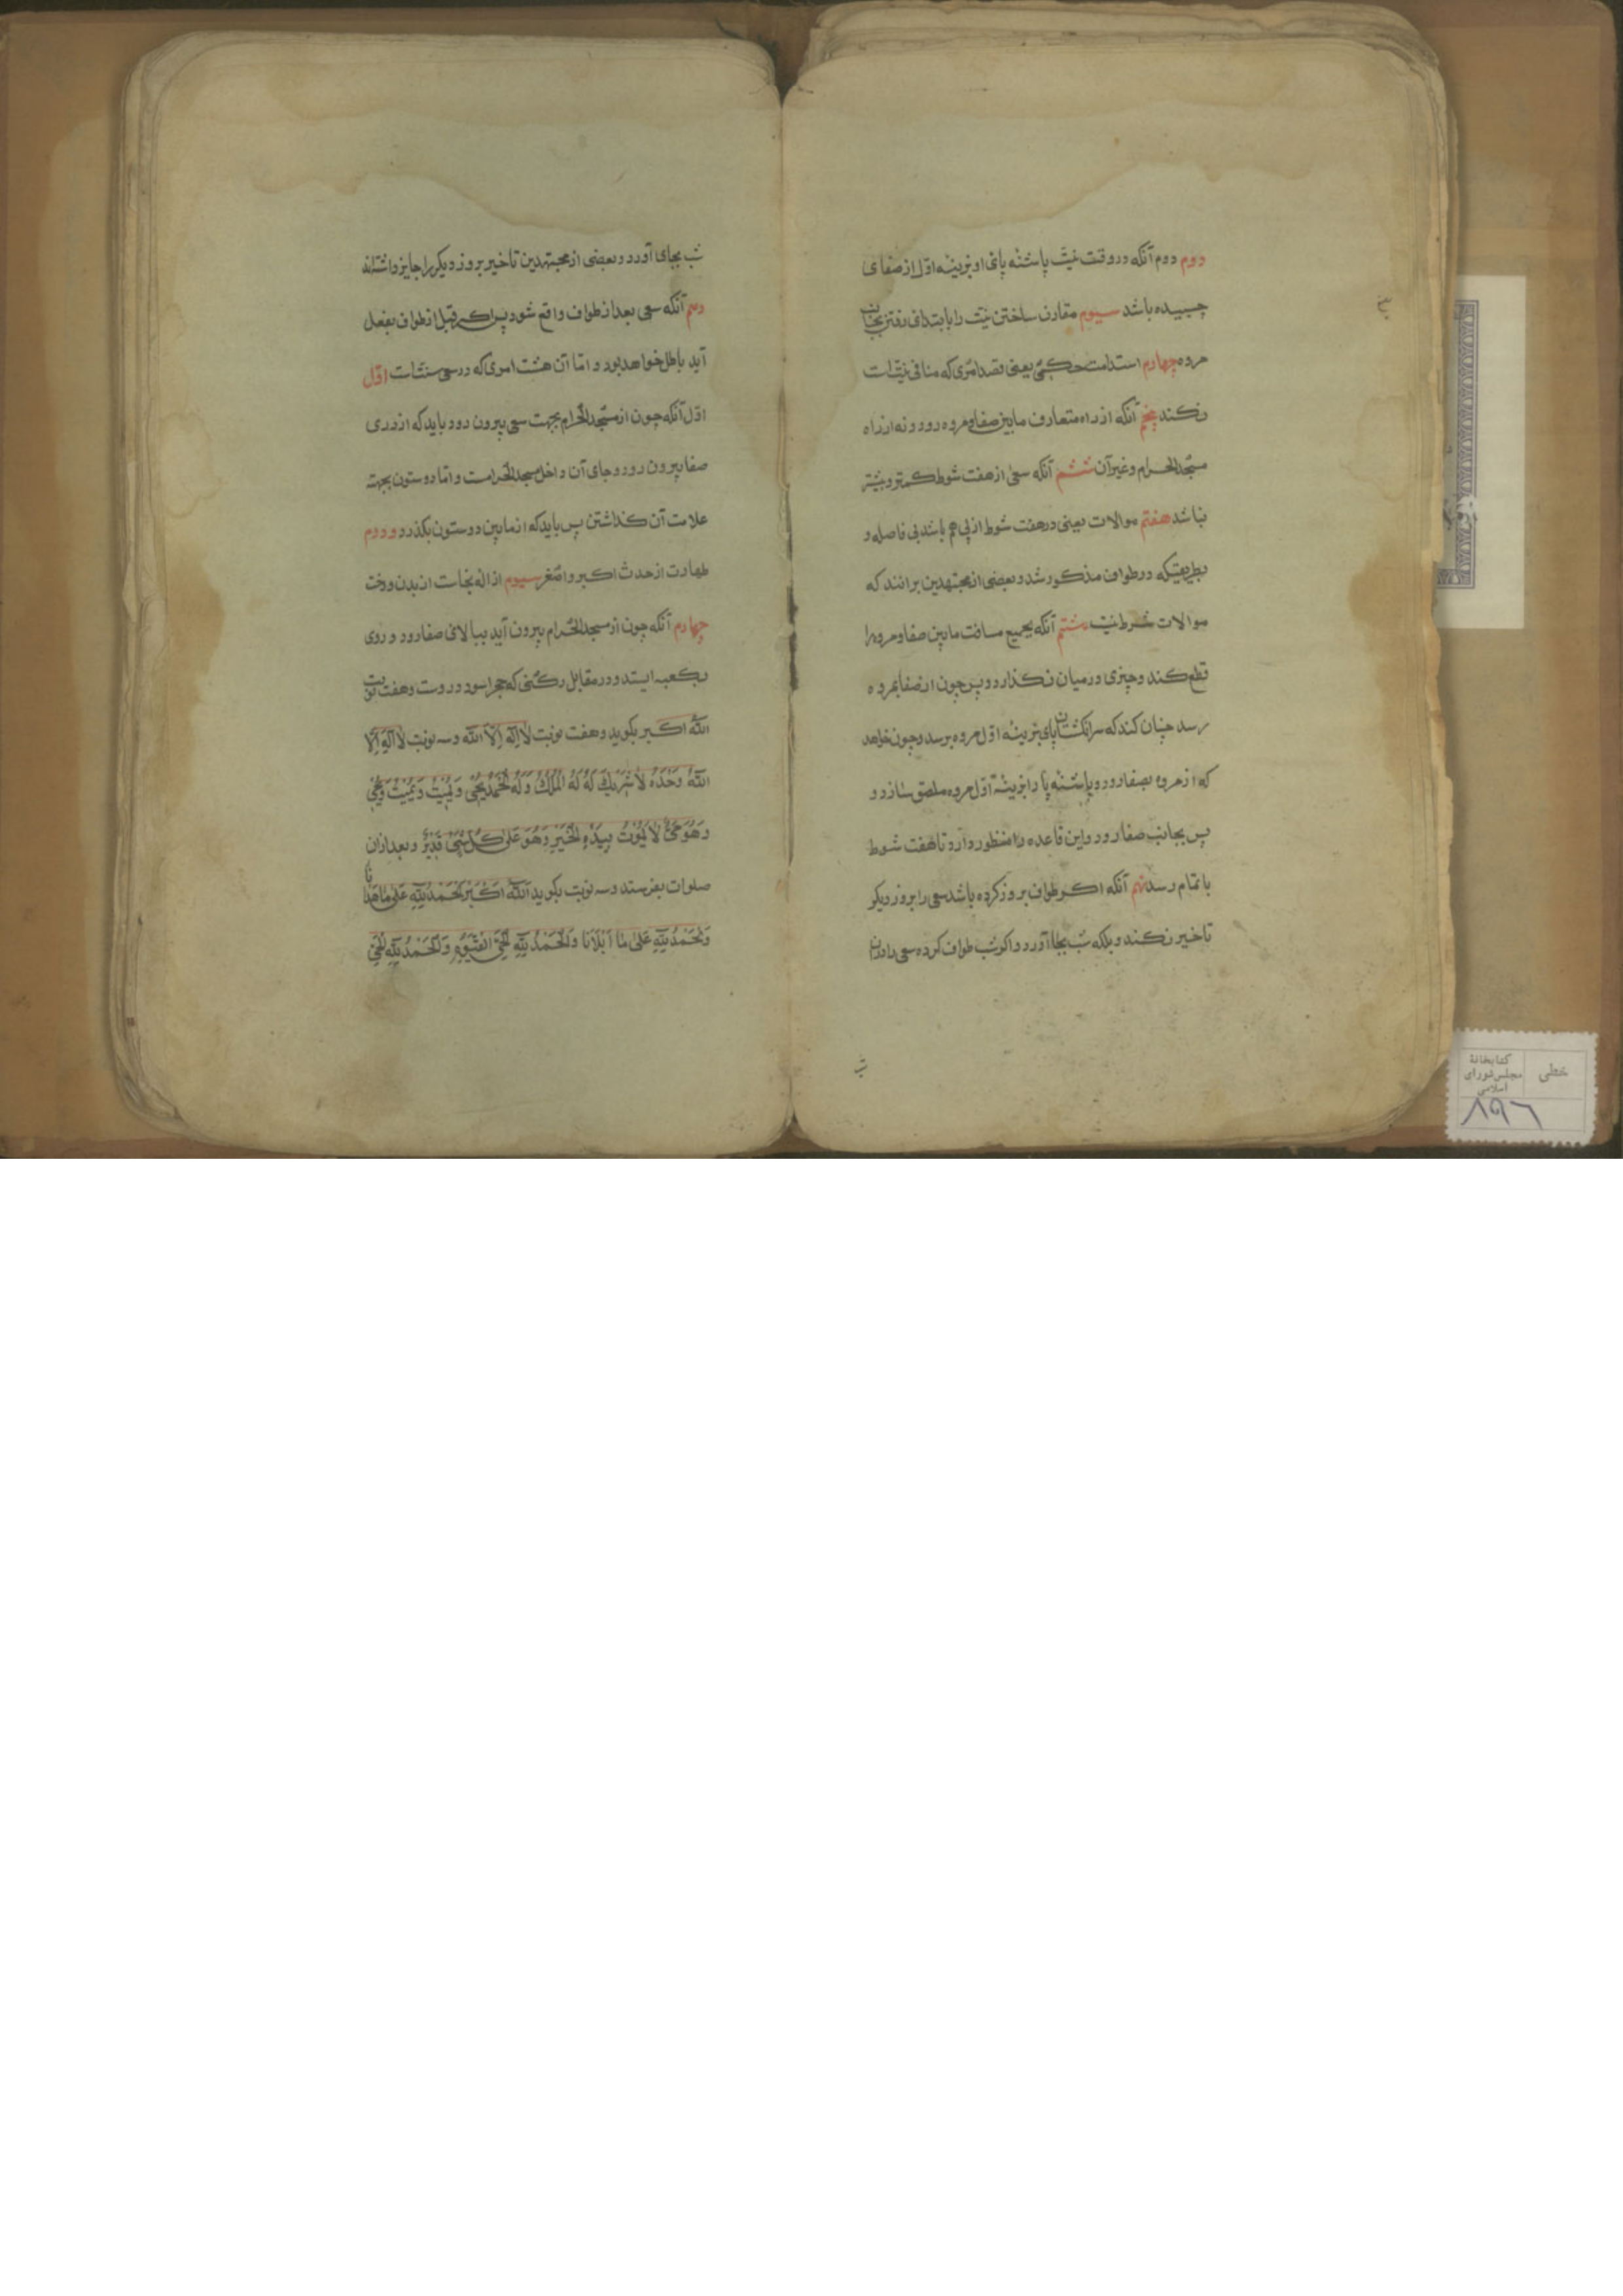 دوم دوم آنکه در وقت نیت پاشنه پای او بزینه اول از صفا ی
چسبیده باشد سیوم مقارن ساختن نیت را بابتدای رفتن بجانب
مروه چهارم استدامت حکمی یعنی قصد امری که منافی نیت است
نکند پنجم آنکه از راه متعارف مابین صفا و مروه رود و نه از راه
مسجد الحرام و غیر آن ششم آنکه سعی از هفت شوط کمتر و بیشتر
نباشد هفتم موالات یعنی در هفت شوط از پی هم باشد بی فاصله و
بطریقیکه در طواف مذکور شد و بعضی از مجتهدین برانند که
موالات شرط نیت هشتم آنکه بجمیع مسافت مابین صفا و مروه را
قطع کند و چیزی در میان نکذارد و پس چون از صفا بمروه
رسد چنان کند که سر انکشتان پای بزینه اول مروه برسد و چون خواهد
که از مروه بصفا رود و پاشنه پا را بزینه اول مروه ملصق سازد و
پس بجانب صفا رود و این قاعده را منظور دارد تا هفت شوط
باتمام رسد نهم آنکه اکر طواف بروز کرده باشد سعی را بروز دیکر
تاخیر نکند و بلکه شب بجا آورد و اکر شب طواف کرده سعی را در آن
شب
شب بجای آورد و بعضی از مجتهدین تاخیر بروز دیکر را جایز داشته‌اند
دهم آنکه سعی بعد از طواف واقع شود پس اکر قبل از طواف بفعل
آید باطل خواهد بود و اما آن هشت امری که در سعی سنت است اول
اول آنکه چون از مسجد الحرام بجهت سعی بیرون رود باید که از در ی
صفا بیرون رود و جای آن داخل مسجد الحرامست و اما دو ستون بجهته
علامت آن کذاشتن پس باید که از مابین دو ستون بکذرد و دوم
طهارت از حدث اکبر و اصغر سیوم ازاله نجاست از بدن و رخت
چهارم آنکه چون از مسجد الحرام بیرون آید ببالای صفا رود و روی
بکعبه ایستد و در مقابل رکنی که حجر اسود دروست و هفت نوبت
الله اکبر بکوید و هفت نوبت لا اله الا الله و سه نوبت لا اله الا
الله وحده لا شریک له له الملک وله الحمد یحیی و یمیت و یمیت و یحیی
وهو حی لا یموت بیده الخیر وهو علی کل شیء قدیر و بعد از آن
صلوات بفرستد و سه نوبت بکوید الله اکبر الحمد لله علی ما هدانا
والحمد لله علی ما ابلانا والحمد لله الحی القیوم والحمد لله الحی
خطی
کتابخانهٔ
مجلس شورای
اسلامی
۸۹۶